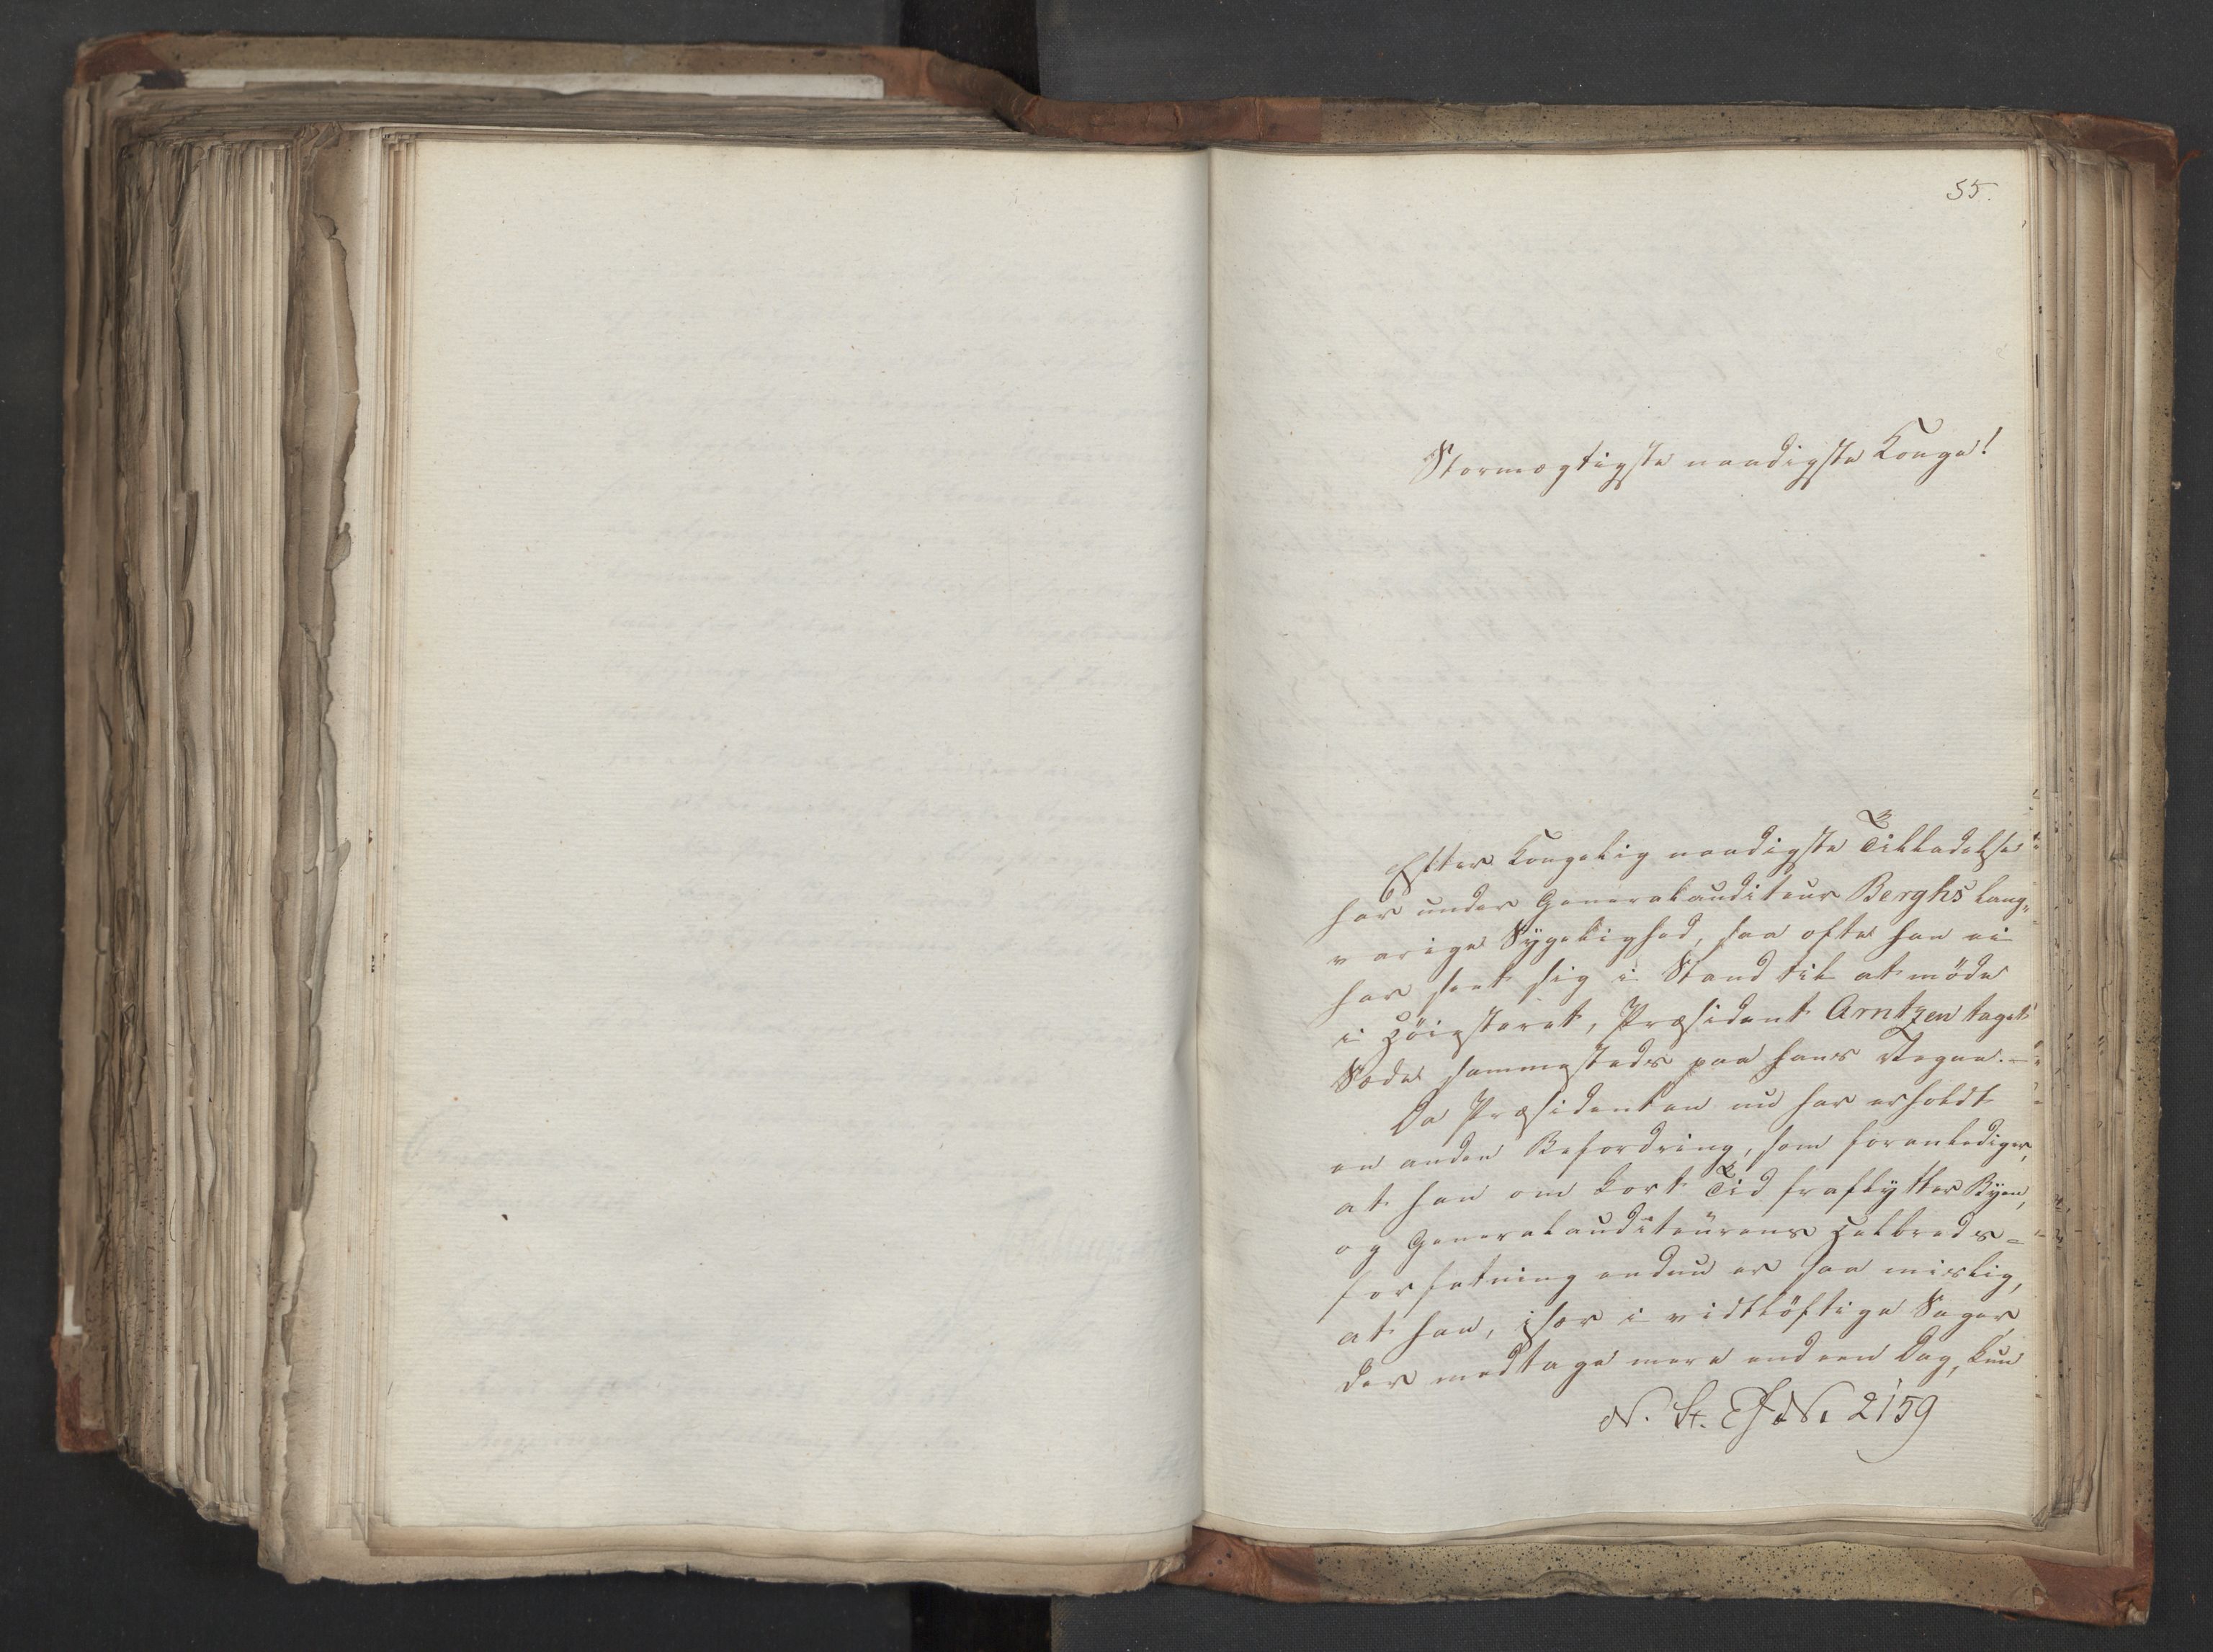 55.
Stormægtigste naadigste Konge!
Efter Kongelig naadigste Tilladelse
har under Generalauditeur Berghs lang„
varige Sygelighed, saa ofte han ei
har seet sig i Stand til at møde
i Høiesteret, Præsident Arntzen taget
Sæde sammesteds paa hans Vegne. –
Da Præsidenten nu har erholdt
en anden Befordring, som foranlediger,
at han om kort Tid fraflytter Byen,
og Generalauditeurens Helbreds=
forfatning endnu er saa mislig,
at han, især i vidtløftige Sager,
der medtage mere end een Dag, kun
N. St. Ex. No. 2159